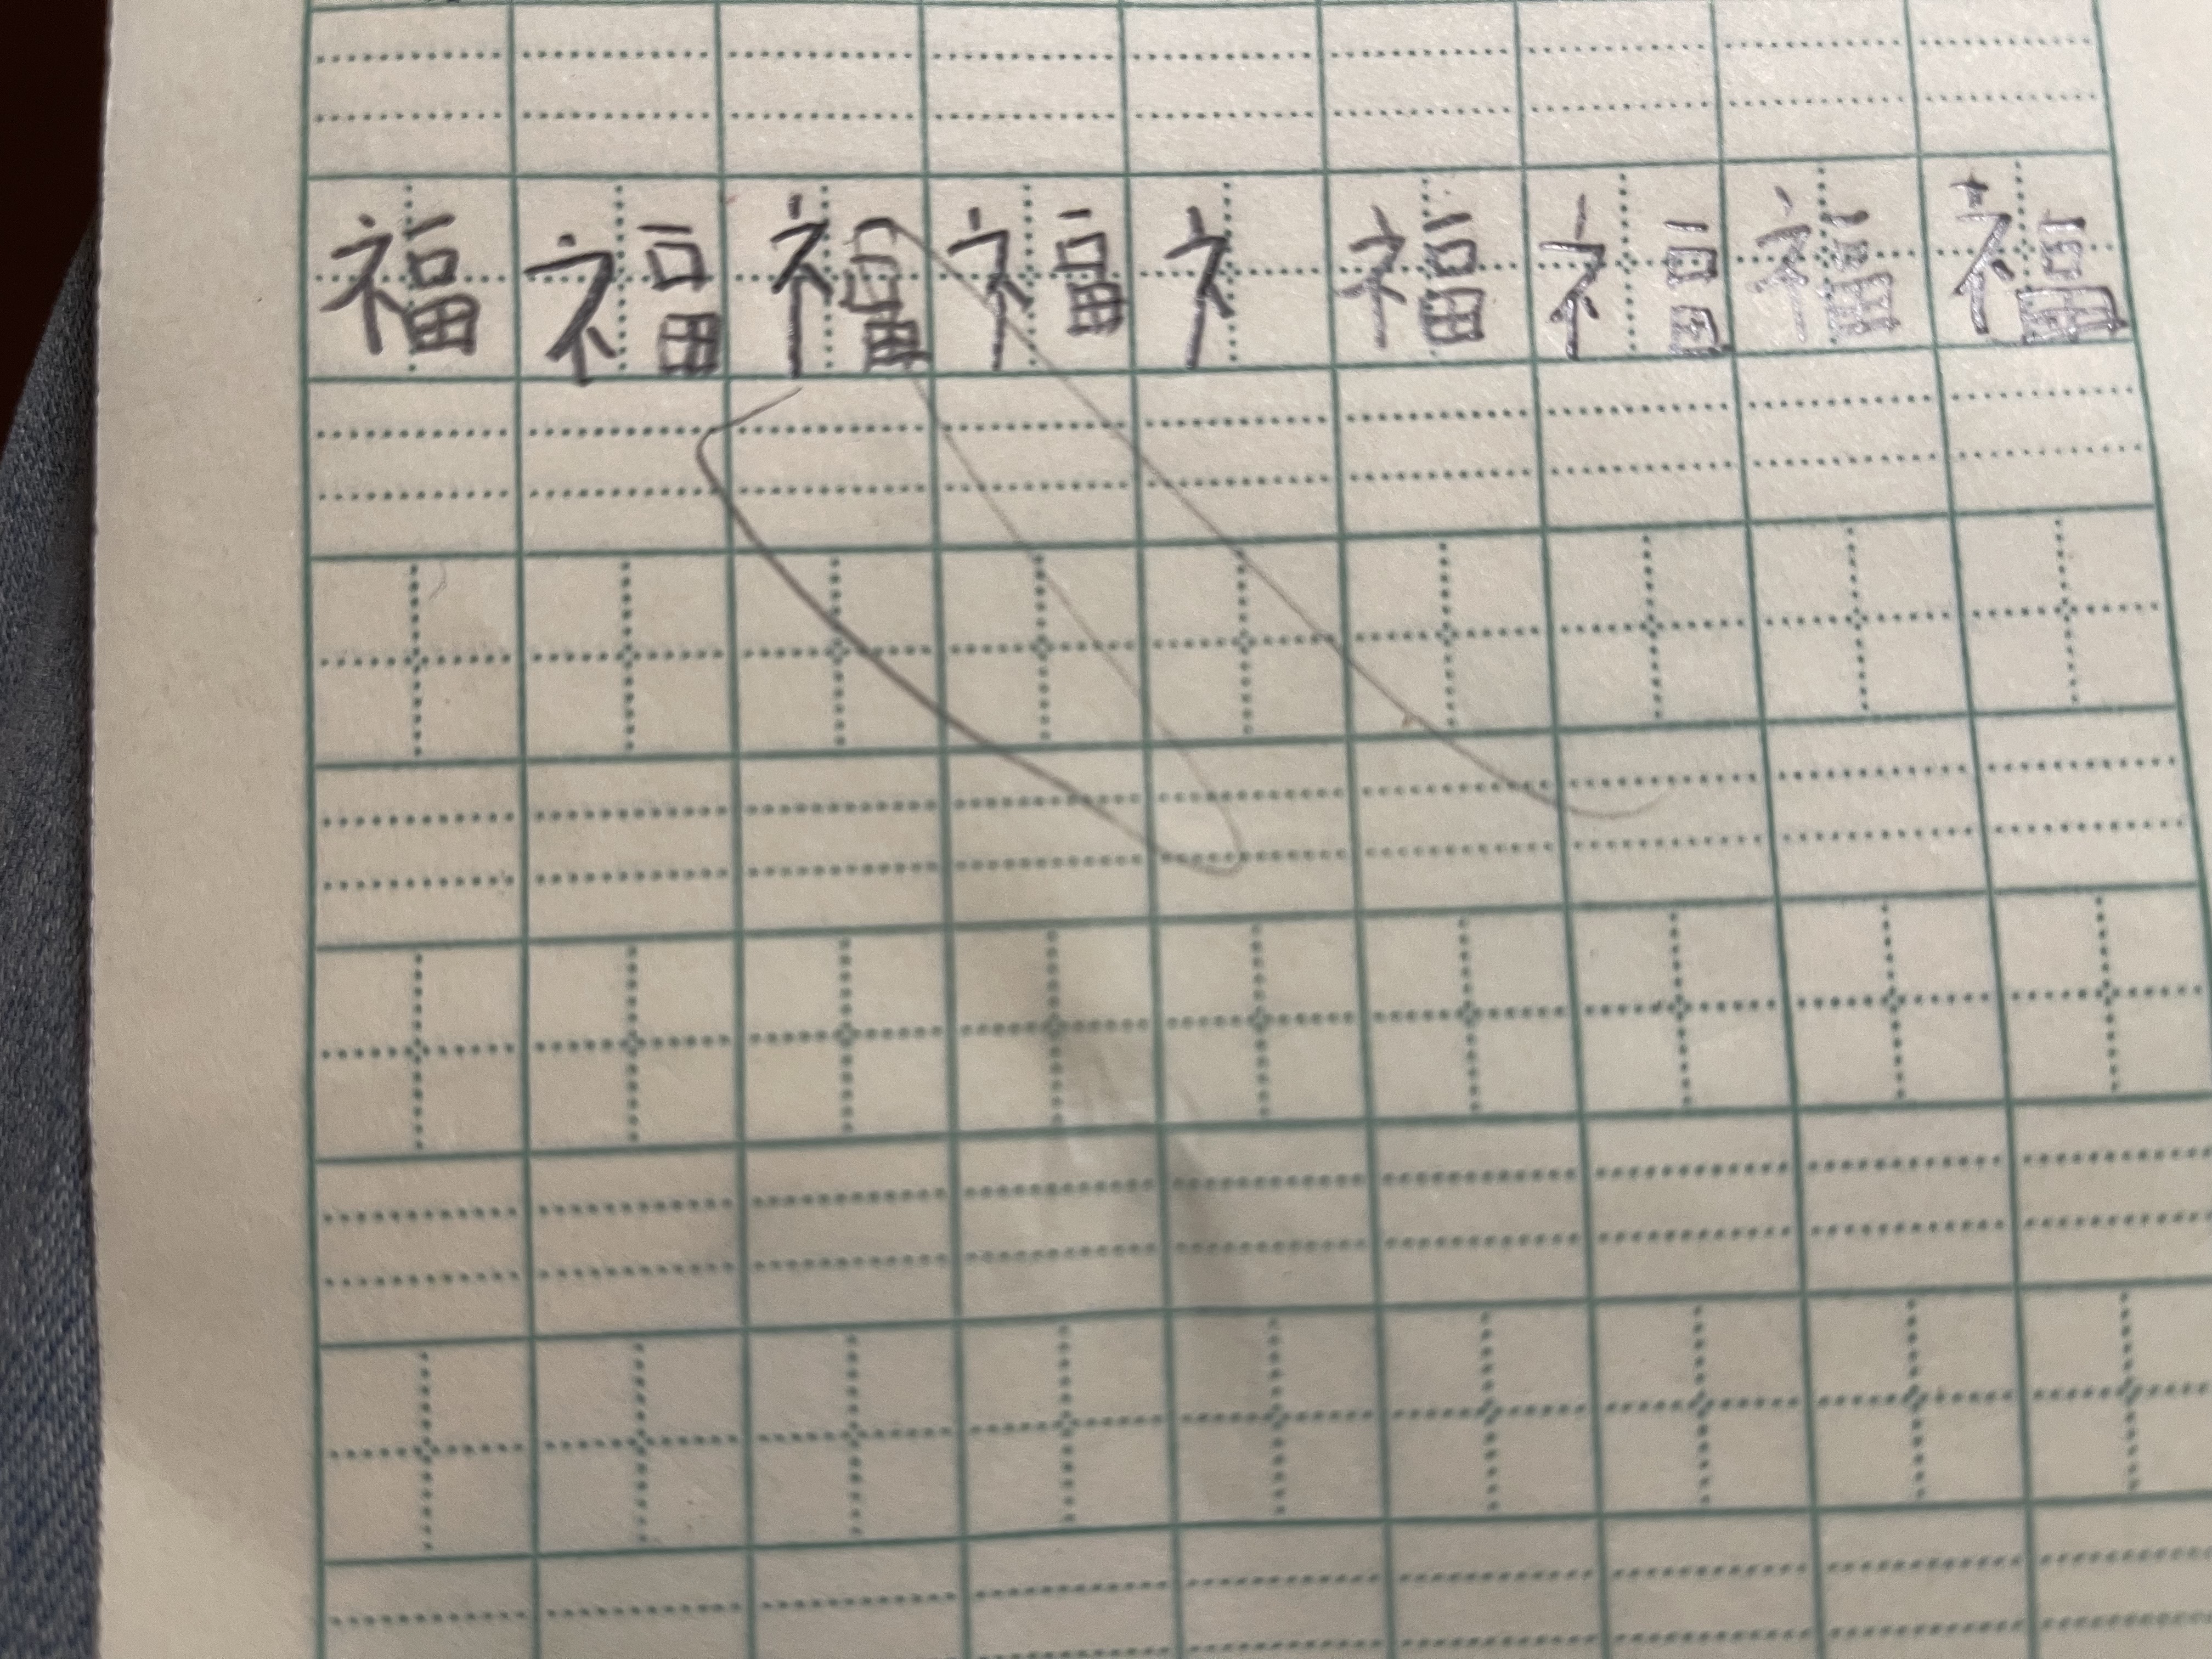 福福福福礻福福福福